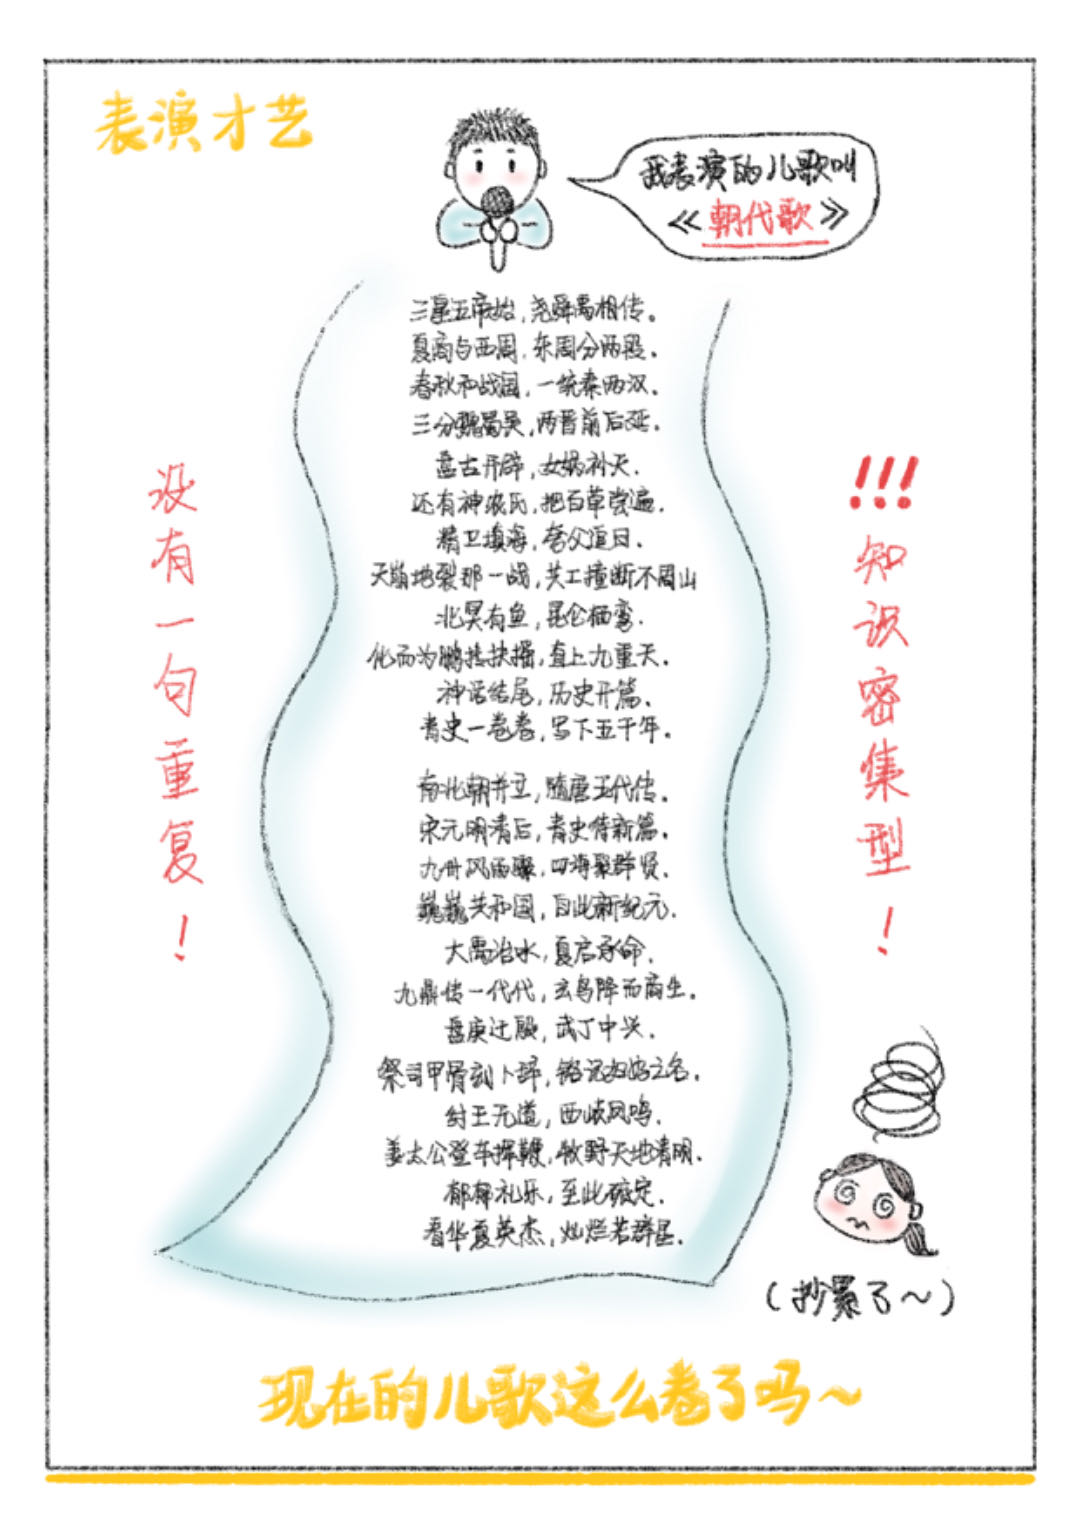 表演才艺
我表演的儿歌叫
《朝代歌》
三皇五帝始，尧舜禹相传。
夏商与西周，东周分两段。
春秋和战国，一统秦两汉。
三分魏蜀吴，两晋前后延。
盘古开辟，女娲补天.
还有神农氏，把百草尝遍.
精卫填海，夸父追日.
天崩地裂那一战，共工撞断不周山
北冥有鱼，昆仑栖鸾.
化而为鹏抟扶摇，直上九重天.
神话结尾，历史开篇.
青史一卷卷，写下五千年.
南北朝并立，隋唐五代传.
宋元明清后，青史待新篇.
九州风雨骤，四海聚群贤.
巍巍共和国，自此新纪元.
大禹治水，夏启承命.
九鼎传一代代，玄鸟降而商生.
盘庚迁殷，武丁中兴.
祭司甲骨刻卜辞，铭记妇好之名.
纣王无道，西岐凤鸣.
姜太公登车挥鞭，牧野天地清明.
郁郁礼乐，至此确定.
看华夏英杰，灿烂若群星.
没有一句重复！
!!!知识密集型！
（抄累了～）
现在的儿歌这么卷了吗～